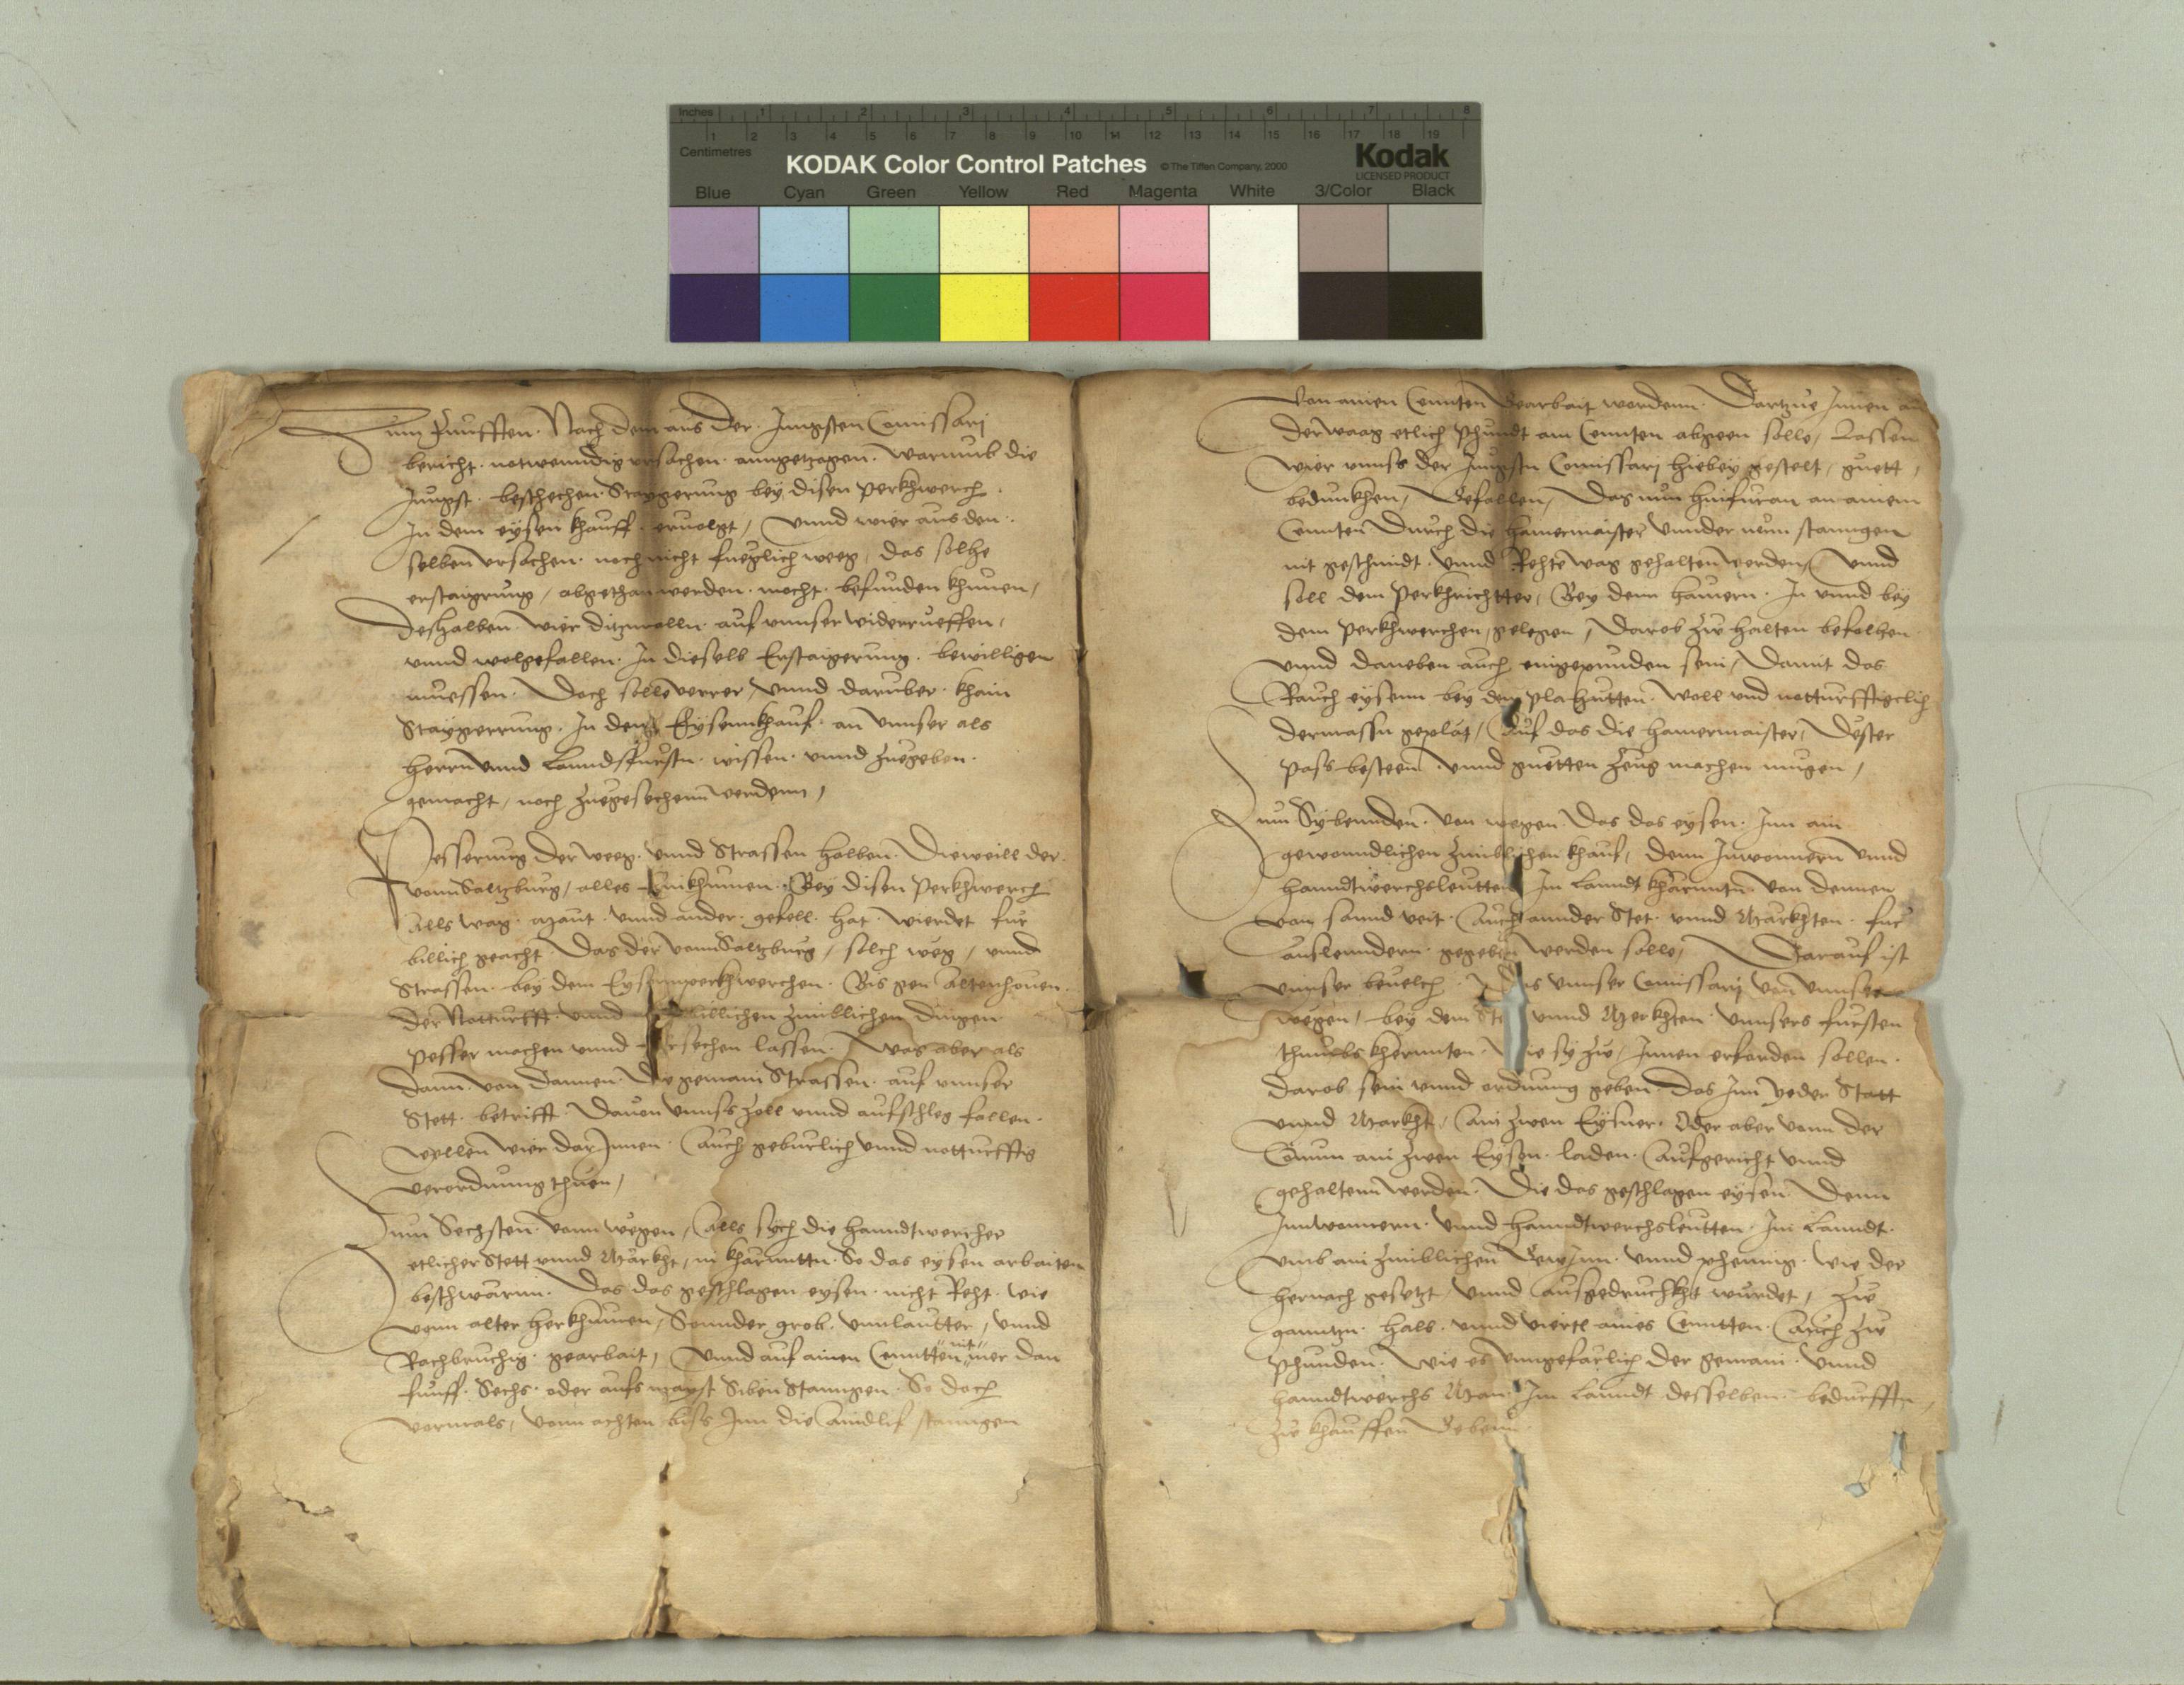 Inches 1 2 3 4 5 6 7 8
1 2 3 4 5 6 7 8 9 10 11 12 13 14 15 16 17 18 19
Centimetres
KODAK Color Control Patches © The Tiffen Company, 2000 Kodak
LICENSED PRODUCT
Blue Cyan Green Yellow Red Magenta White 3/Color Black
Zum Funfften. Nach dem aus der Jungsten Comissarj
bericht. notwenndig vrsachen. anngetzogen. warumb die
Jungst. beschechen Staygerung bey disen perkhwerch.
In dem eysen khauff. eruolgt, Vnnd wier aus den
selben vrsachen. noch nicht fueglich weeg, das solhe
erstaigrung, abgethan werden. mocht. befunden khunen,
Deshalben. wier ditzmalln auf vnnser widerrueffen,
vnnd wolgefallen. In dieselb Erstaigerung. bewilligen
muessen. Doch solle verrer, Vnnd daruber. khain
Staygerrung. In dem Eysennkhauf. an Vnnser als
herrn Vnnd Lanndsfursten. wissen. vnnd zuegeben.
gemacht, noch zuegesechenn werdenn,
Pesserung der weeg. Vnnd Strassen halben. Dieweill der
vonn Saltzburg, alles Einkhumen. Bey disen perkhwerch
Alls wag. mautt. Vnnd ander. gefell. hat. wierdet fur
billich geacht. Das der vonn Saltzburg, solch weg, vnnd
Strassen. bey dem Eysennperkhwerchen. Bis gen Altenhouen.
der Notturfft. vnnd billichen zimblichen dingen
pesser machen vnnd sechen lassen. Was aber als
dann. von dannen. Die gemain Strassen. auf vnnser
Stett. betrifft. Dauon Vnnss Zoll vnnd aufschleg fallen.
wellen wier dar Innen. Auch geburlich Vnnd notturfftig
verordnung thuen,
Zum Sechsten. vonn wegen, Alls sych die hanndtwercher
etlicher Stett vnnd Märkht, in khärnntn. So das eysen arbaiten
beschwärnn. Das das geschlagen eysen. nicht Reht. wie
vonn alter herkhumen, Sonnder grob. vnnlautter, vnnd
Rachbruchig. gearbait, Vnnd auf ainen Cenntten nit mer dan
funff. Sechs. oder aufs mayst Siben Stanngen. So doch
vormals, vonn achten biss Inn die Aindlif stanngen
Von ainen Cennten Gearbait wordenn. Dartzue Innen an
der waag etlich phundt am Cennten abgeen solle, Lassen
wier vnnss der Jungstn Comissarj hiebey gestelt, guett,
bedunkhen, Gefallen, Das nun hinfuran an ainem
Cennten Durch die hamermaister Vnnder neun stanngen
nit geschmidt. Vnnd Rehte wag gehalten werden, Vnnd
soll dem perkhrichtter, Bey denn hämern. In vnnd bey
dem perkhwerchen, gelegen, Darob zw halten befolhen
vnnd daneben auch eingepunden sein, Damit das
Rauch eysenn bey den plahutten. woll vnd notturfftigclich
dermassn geplat, Auf das die hamermaister, Dester
pass besteen. Vnnd guetten Zeug machen mugen,
Zum Sybennden. von wegen. Das das eysen. Inn ain
gewonndlichen zimblichen khauf, denn Inwonnern Vnnd
hanndtwerchsleutten Im Lanndt khärnntn. von dennen
von sannd veit. Auch annder Stet. vnnd Märkhten. fur
auslenndern. gegeben werden solle, Darauf ist
vnnser beuelch. Das vnnser Comissarj von vnnser
wegen, bey dem Stet vnnd Merkhten. Vnnsers fursten
thumbs khernnten. Die sy zw, Innen erfordern sollen.
darob sein vnnd ordnung geben. Das Inn yeder Statt
vnnd Markht, Ain zwen Eysner. Oder aber vonn der
Comun ain zwen Eysen. laden. Aufgericht Vnnd
gehaltenn werden. Die das geschlagen eysen. Denn
Innwonnern. Vnnd hanndtwerchsleutten. Im Lanndt.
Vmb ain zimblichen Gewinn. vnnd phennig. wie der
hernach gesetzt, Vnnd Ausgedruckht wurdet, zw
ganntzn. halb. vnnd viertl aines Cenntten. Auch zw
phunden. wie es vnngefärlich der gemain. Vnnd
hanndtwerchs Man. Im Lanndt desselben. bedurfftn,
zw khauffen Gebenn.